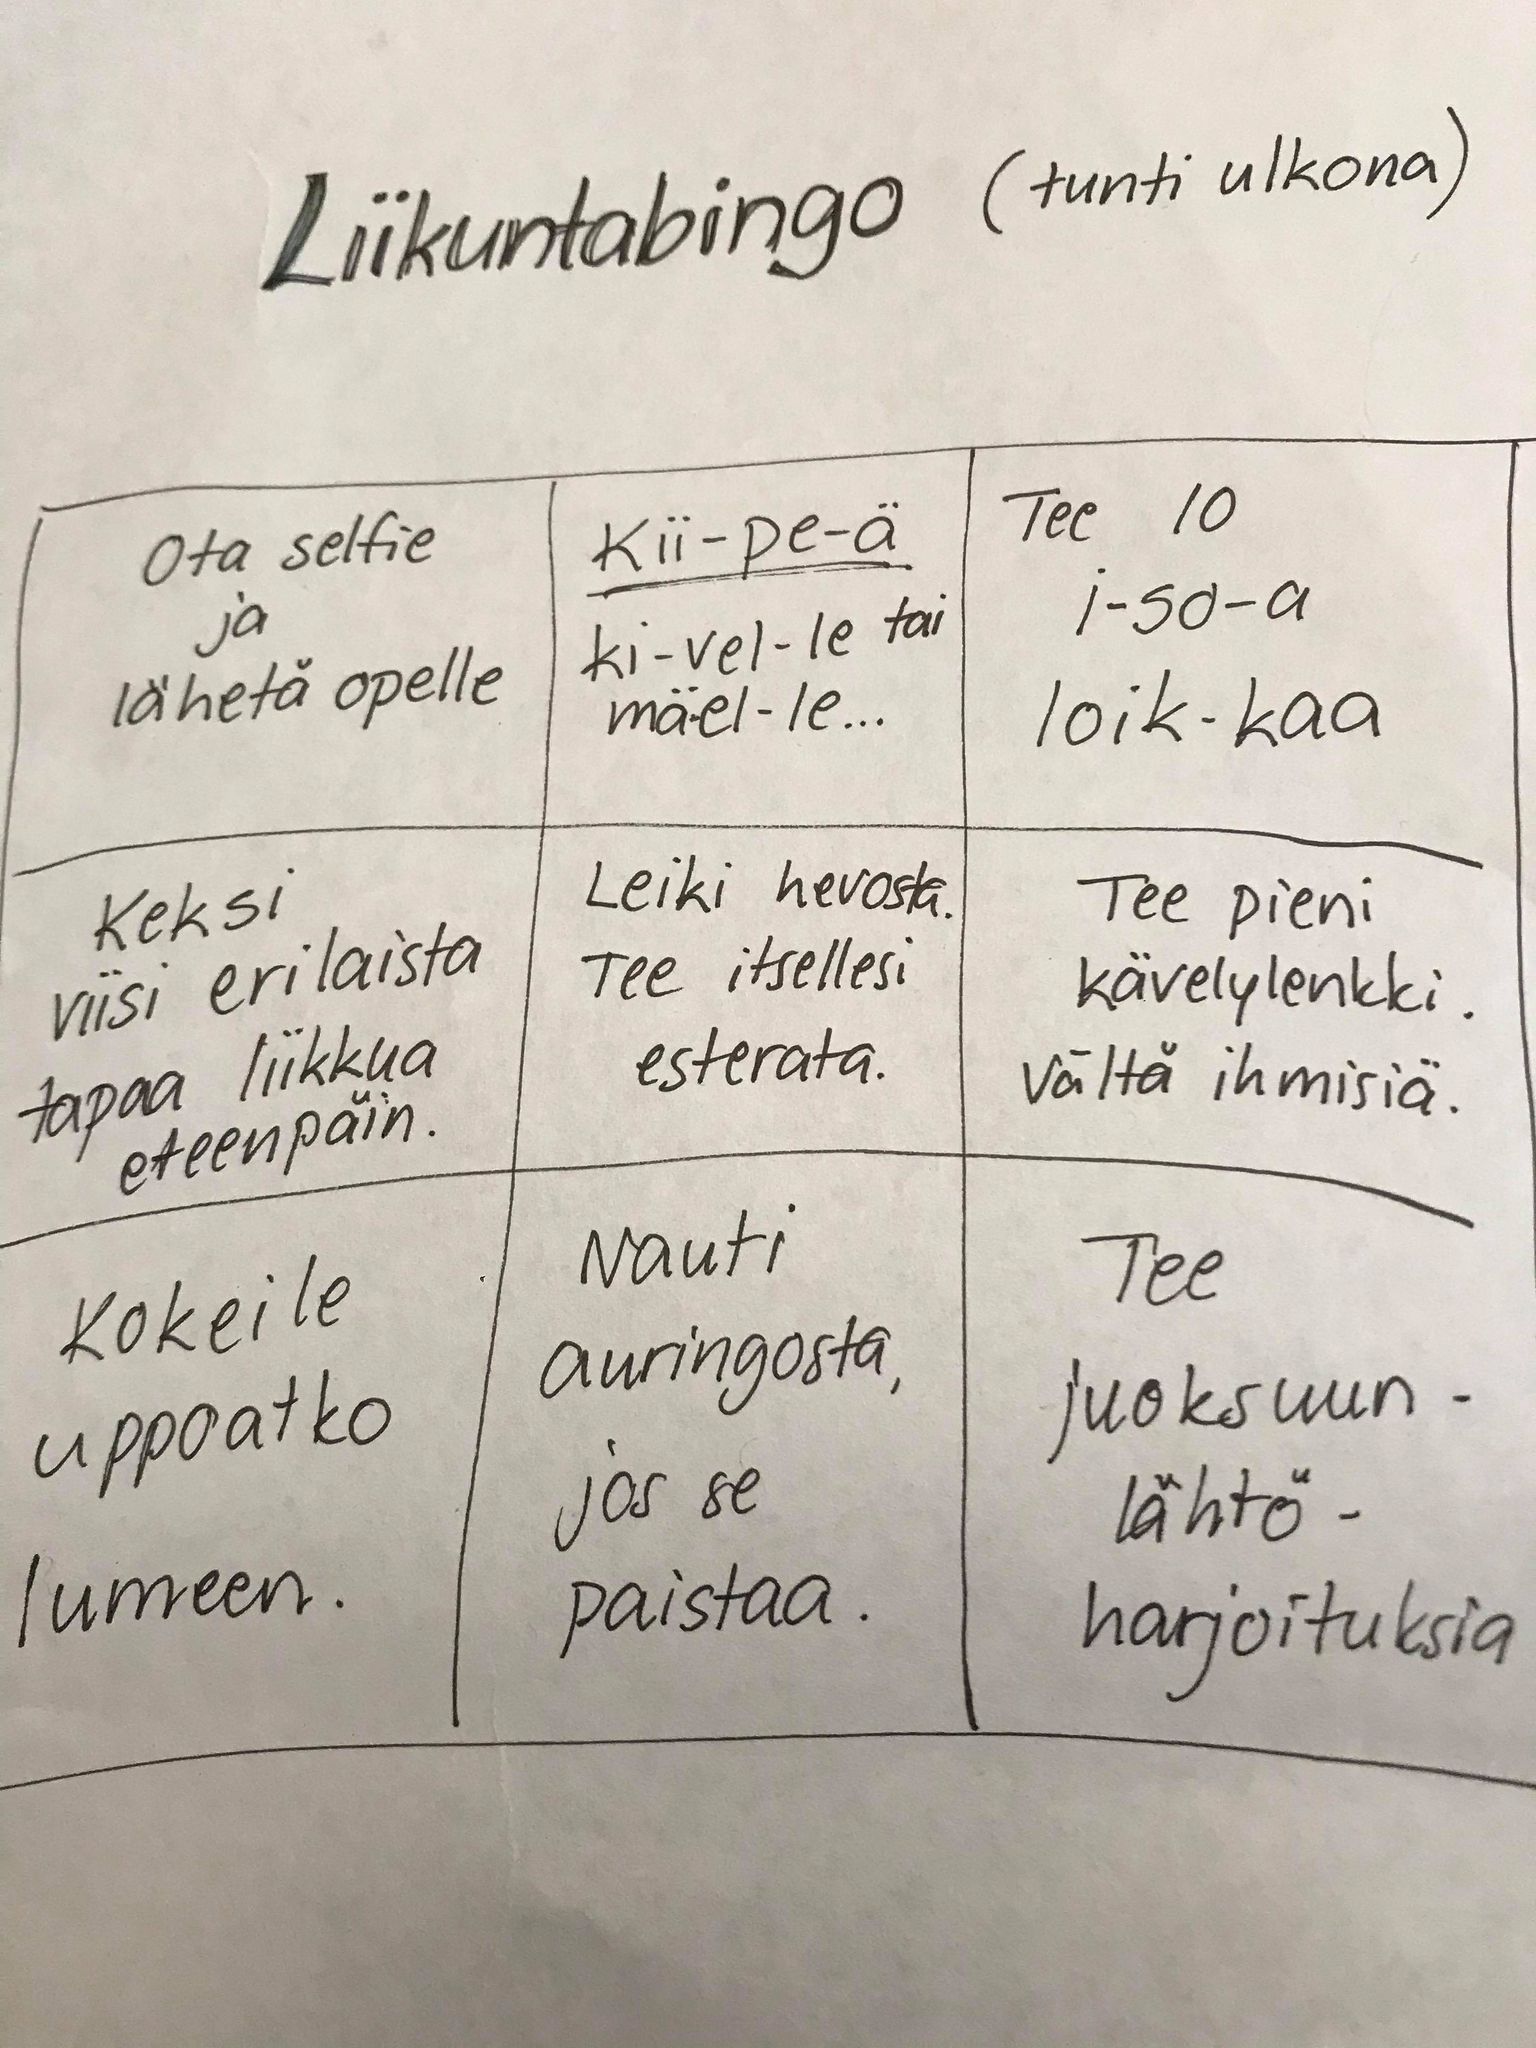 Liikuntabingo (tunti ulkona)
Ota selfie
ja
lähetä opelle
Kii-pe-ä
ki-vel-le tai
mäel-le...
Tee 10
i-so-a
loik-kaa
Keksi
viisi erilaista
tapaa liikkua
eteenpäin.
Leiki hevosta.
Tee itsellesi
esterata.
Tee pieni
kävelylenkki.
Vältä ihmisiä.
Kokeile
uppoatko
lumeen.
Nauti
auringosta,
jos se
paistaa.
Tee
juoksuun-
lähtö-
harjoituksia